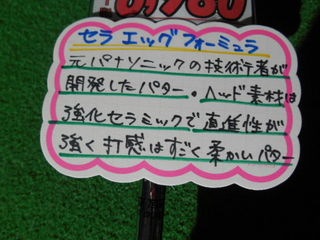 セラ エッグ フォーミュラ
元パナソニックの技術者が
開発したパター。ヘッド素材は
強化セラミックで直進性が
強く打感はすごく柔かいパター